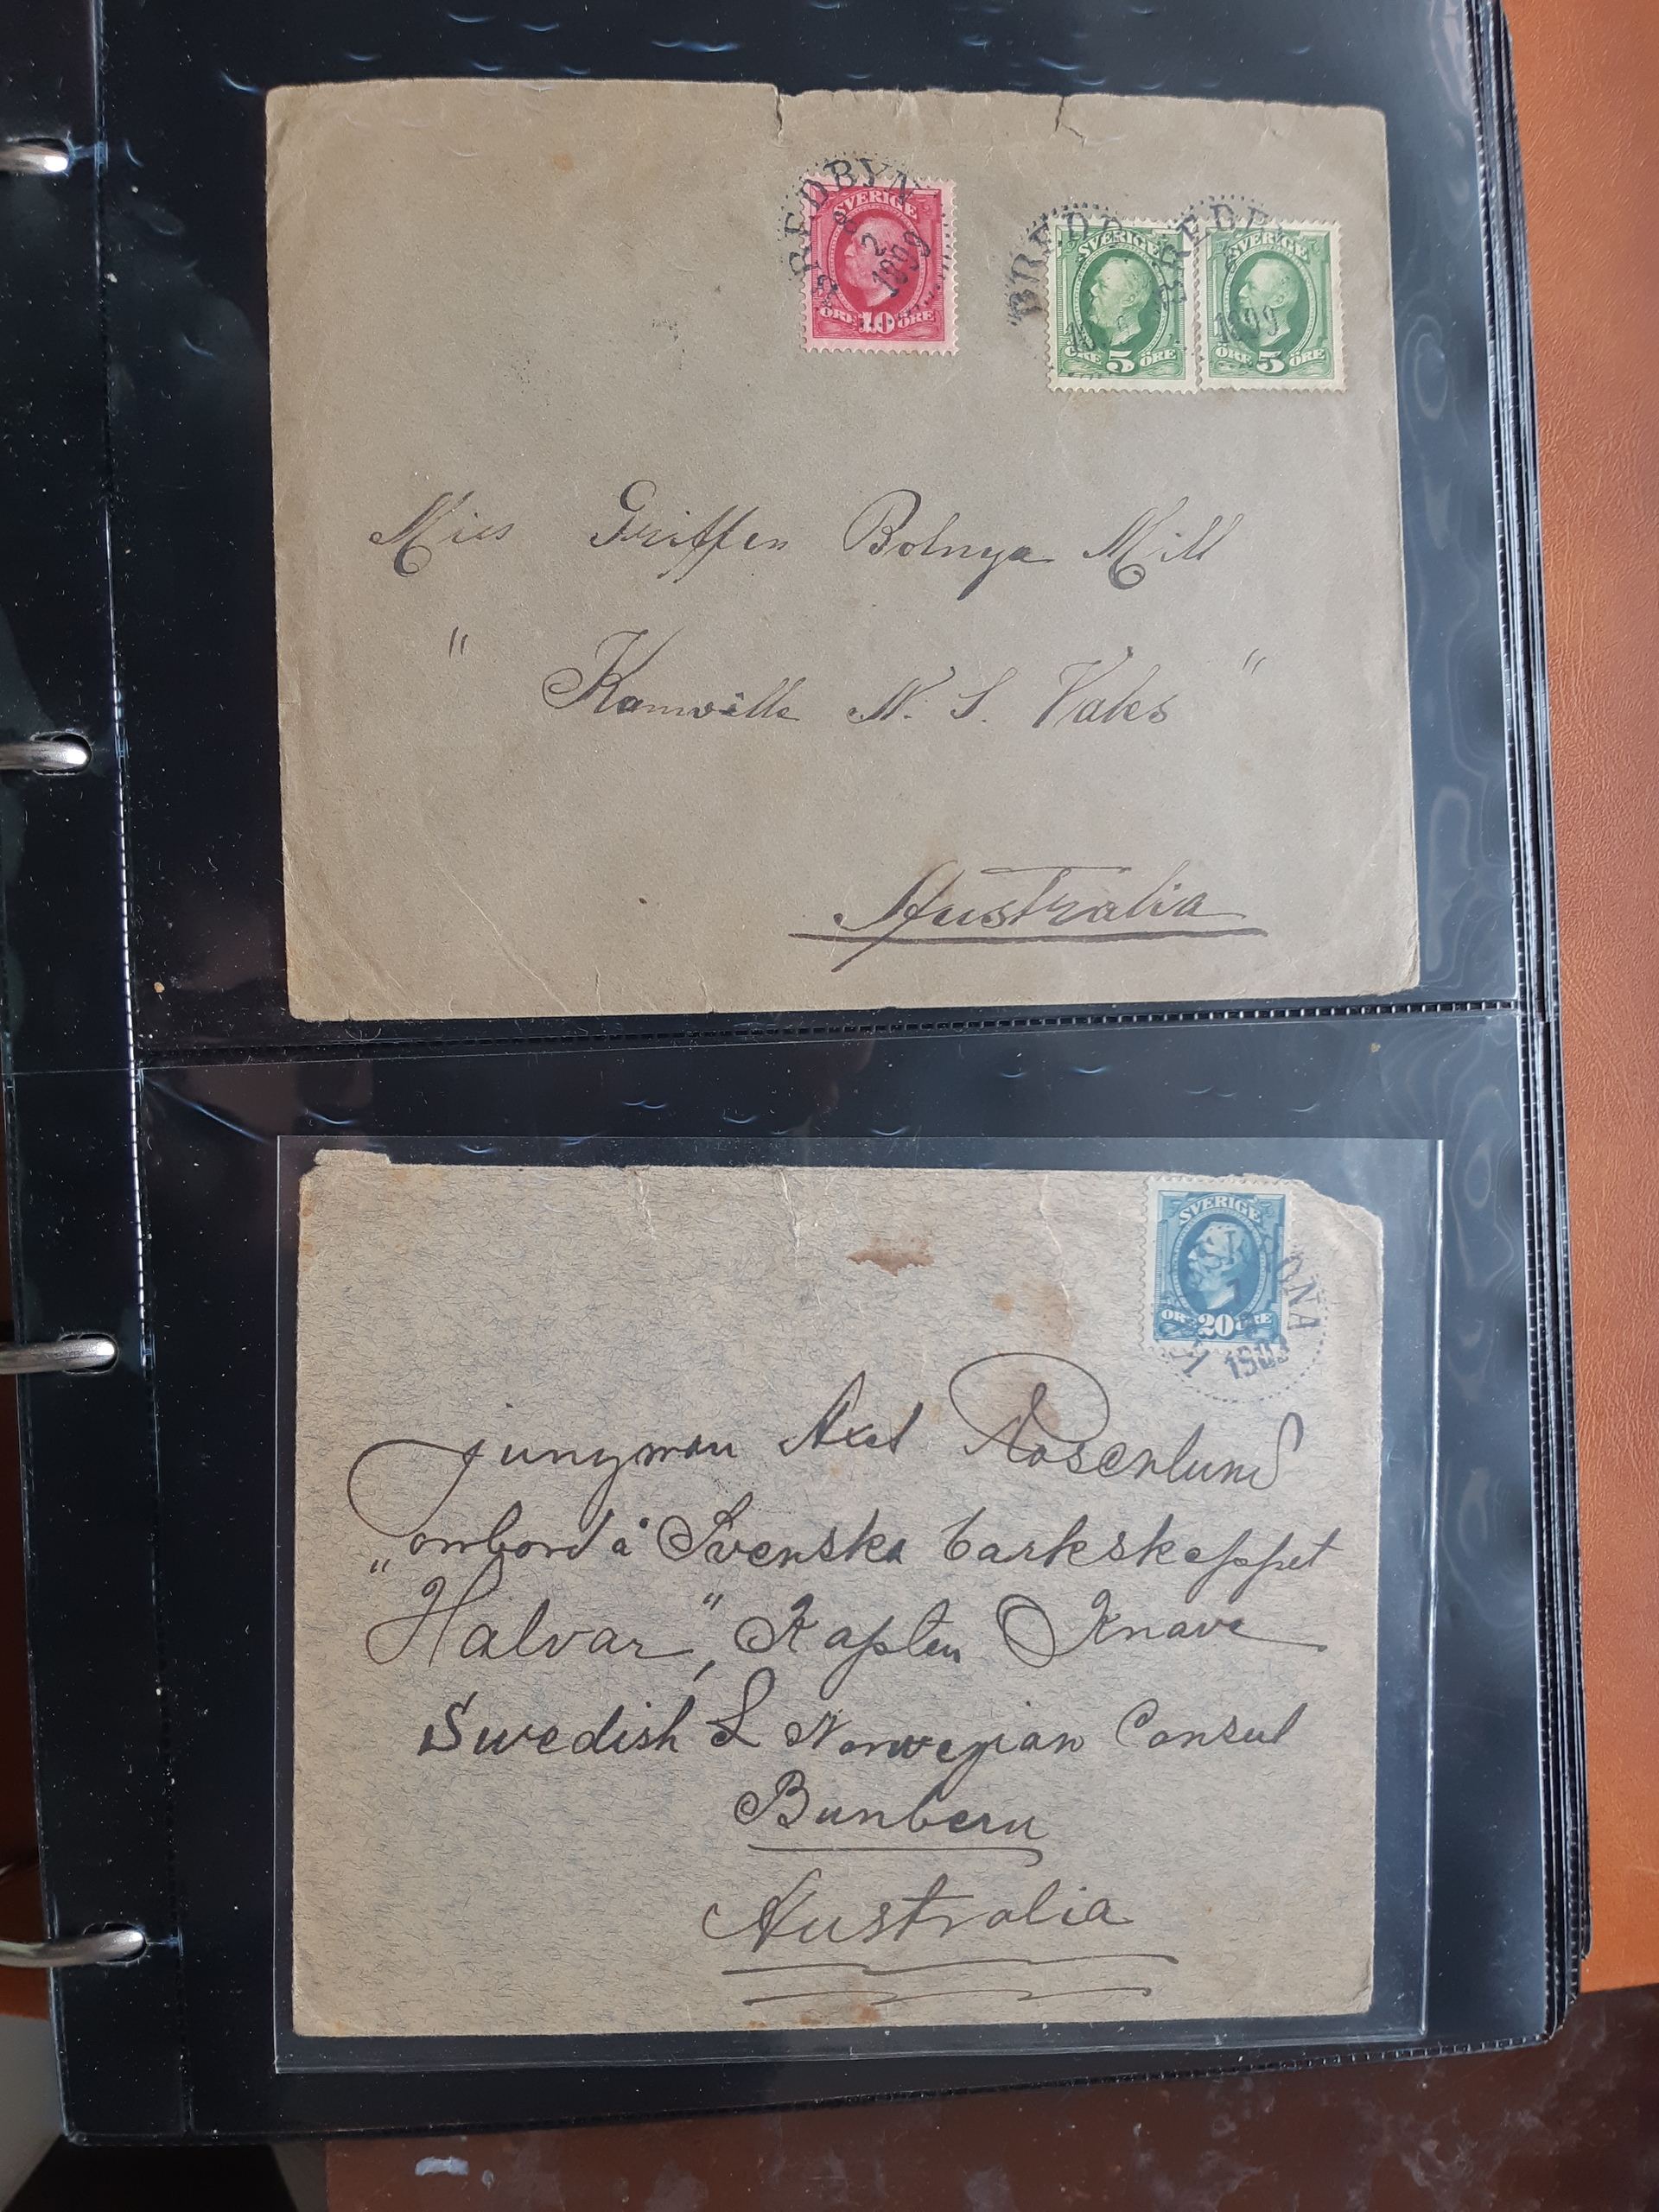 BREDBYN
8
2
1899
SVERIGE
ÖRE 10 ÖRE
BREDBY
SVERIGE
ÖRE 5 ÖRE
BREDBY
1899
SVERIGE
ÖRE 5 ÖRE
Miss Griffen Bolnya Mill
" Kamville N. S. Vales "
Australia
SVERIGE
ÖRE 20 ÖRE
KARLSKRONA
jungman Axel Rosenlund
ombord å Svenska barkskeppet
"Halvar", Kapten Knave
Swedish & Norwegian Consul
Bunbery
Australia